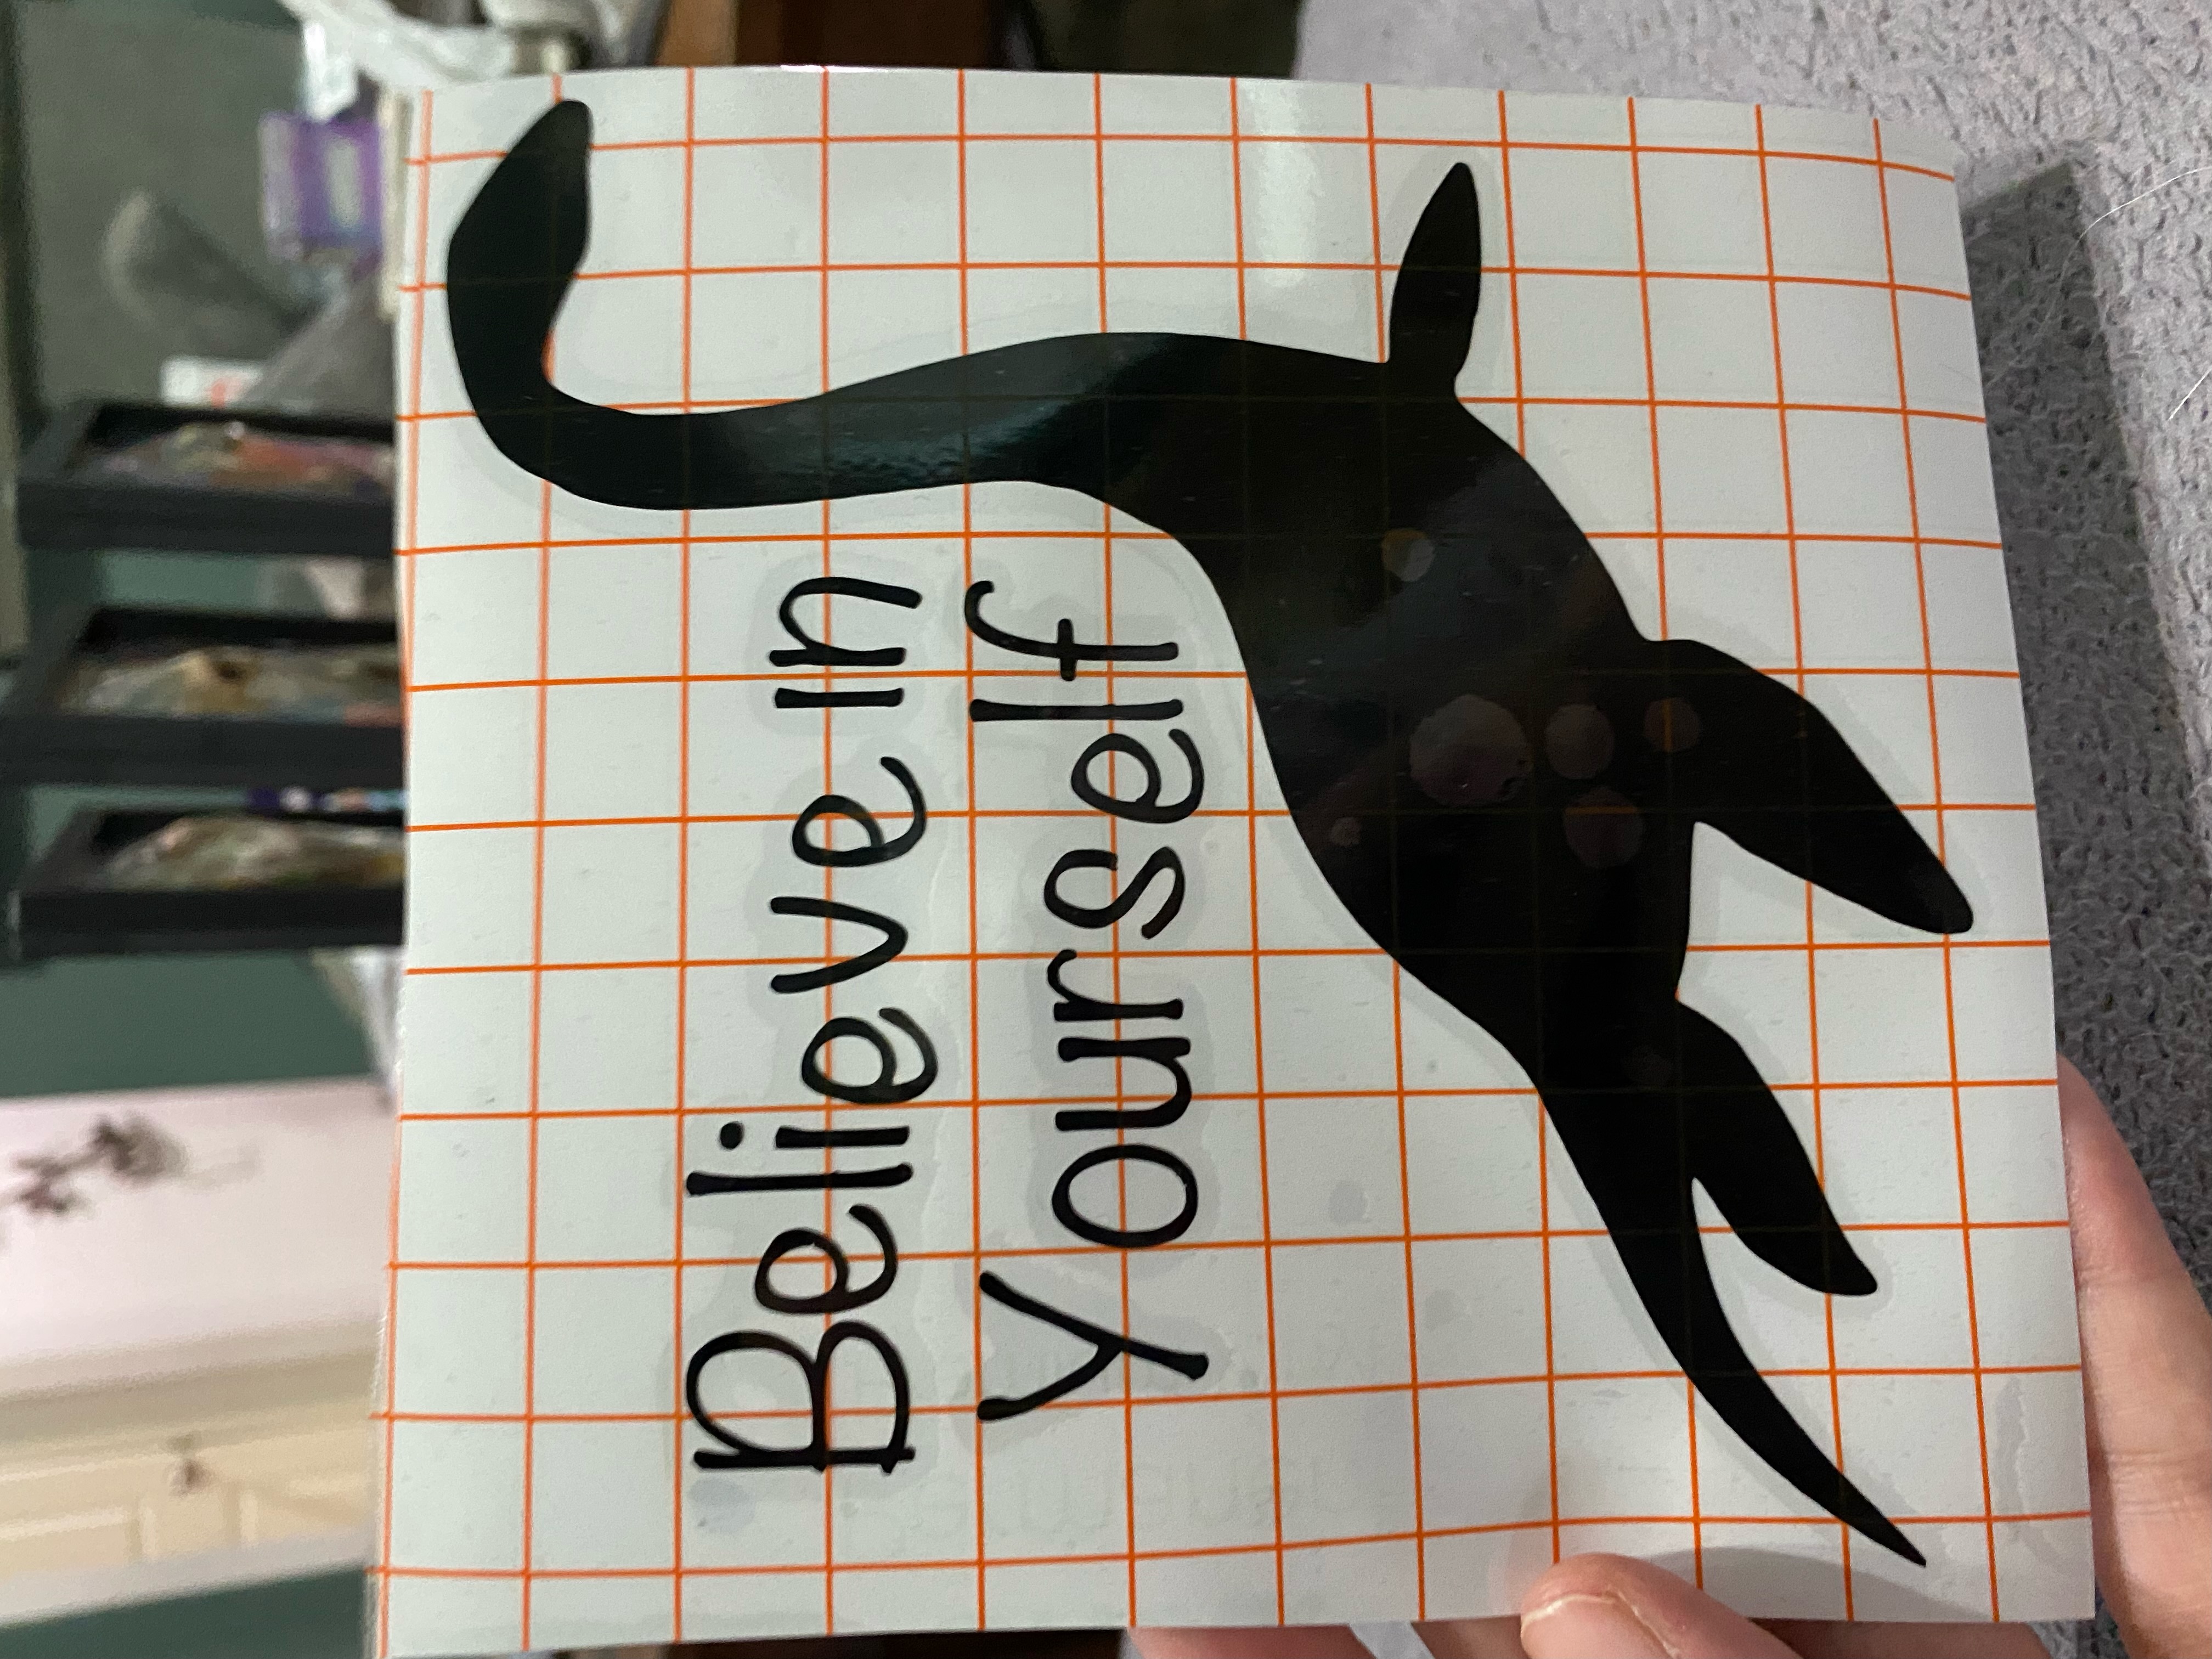 Believe in
yourself